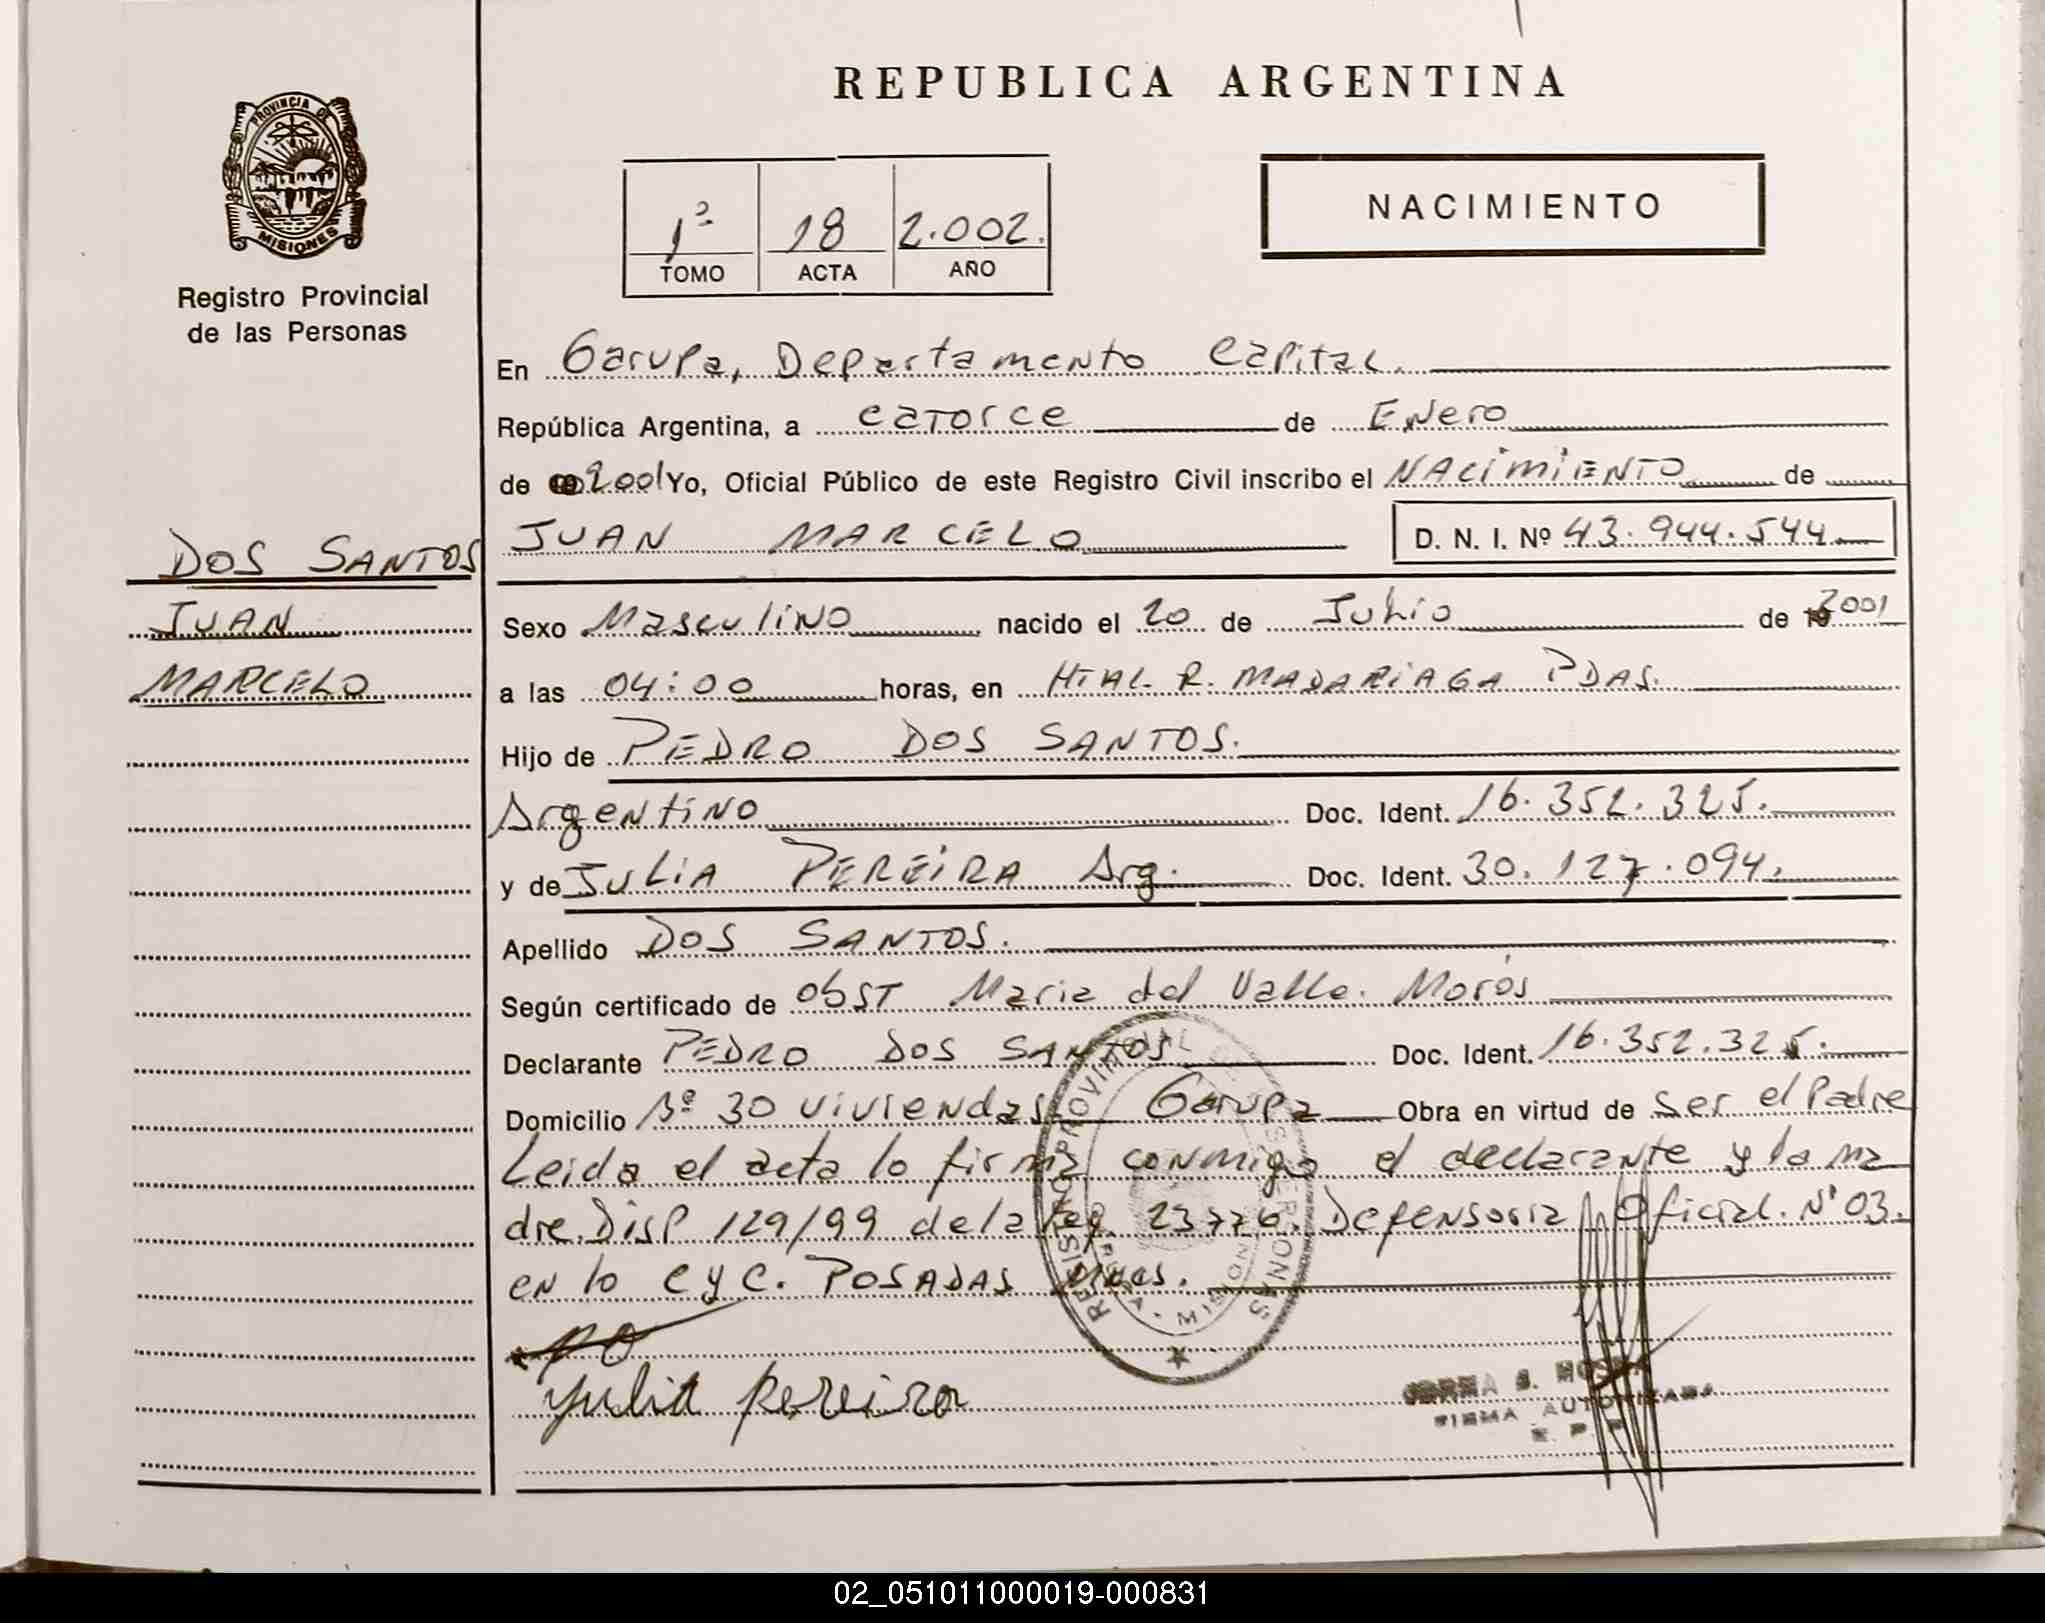 REPUBLICA ARGENTINA
PROVINCIA DE
MISIONES
Registro Provincial
de las Personas
1º 18 2.002.
TOMO ACTA AÑO
NACIMIENTO
En Garupa, Departamento Capital.
República Argentina, a catorce de Enero
de 2001 Yo, Oficial Público de este Registro Civil inscribo el NACIMIENTO de
DOS SANTOS
JUAN
MARCELO
JUAN MARCELO D. N. I. Nº 43.944.544
Sexo Masculino nacido el 20 de Julio de 2001
a las 04:00 horas, en HTAL. R. MADARIAGA PDAS.
Hijo de PEDRO DOS SANTOS.
Argentino Doc. Ident. 16.352.325.
y de JULIA PEREIRA Arg. Doc. Ident. 30.127.094.
Apellido DOS SANTOS.
Según certificado de obst Maria del Valle Morós
Declarante PEDRO DOS SANTOS Doc. Ident. 16.352.325.
Domicilio Bº 30 viviendas Garupa Obra en virtud de ser el Padre
Leida el acta lo firma conmigo el declarante y la ma
dre. Disp 129/99 de la Ley 23776. Defensoria Oficial. Nº 03.
en lo C y C. POSADAS Mnes.
REGISTRO PROVINCIAL DE LAS PERSONAS
MISIONES
Yulia Pereira
FIRMA AUTORIZADA
02_051011000019-000831